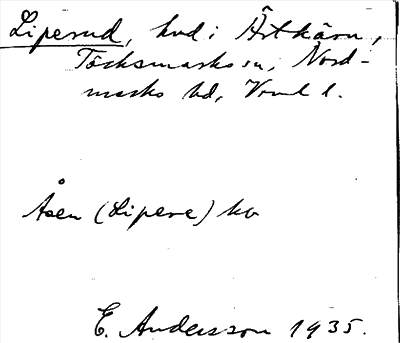 Liperud, hvd i Östkärn,
Töcksmarks sn, Nord-
marks hd, Vrml l.
Åsen (Lipere) ko
E. Andersson 1935.